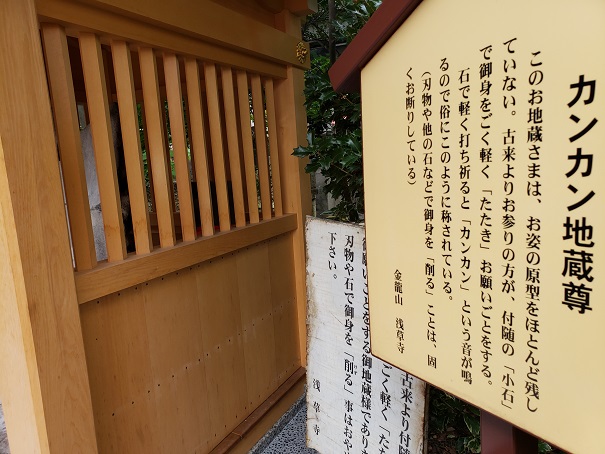 カンカン地蔵尊
このお地蔵さまは、お姿の原型をほとんど残し
ていない。古来よりお参りの方が、付随の「小石」
で御身をごく軽く「たたき」お願いごとをする。
石で軽く打ち祈ると「カンカン」という音が鳴
るので俗にこのように称されている。
(刃物や他の石などで御身を「削る」ことは、固
くお断りしている)
金龍山 浅草寺
古来より付随
ごく軽く「たた
御願いごとをする御地蔵様でありま
刃物や石で御身を「削る」事はおや
下さい。
浅草寺